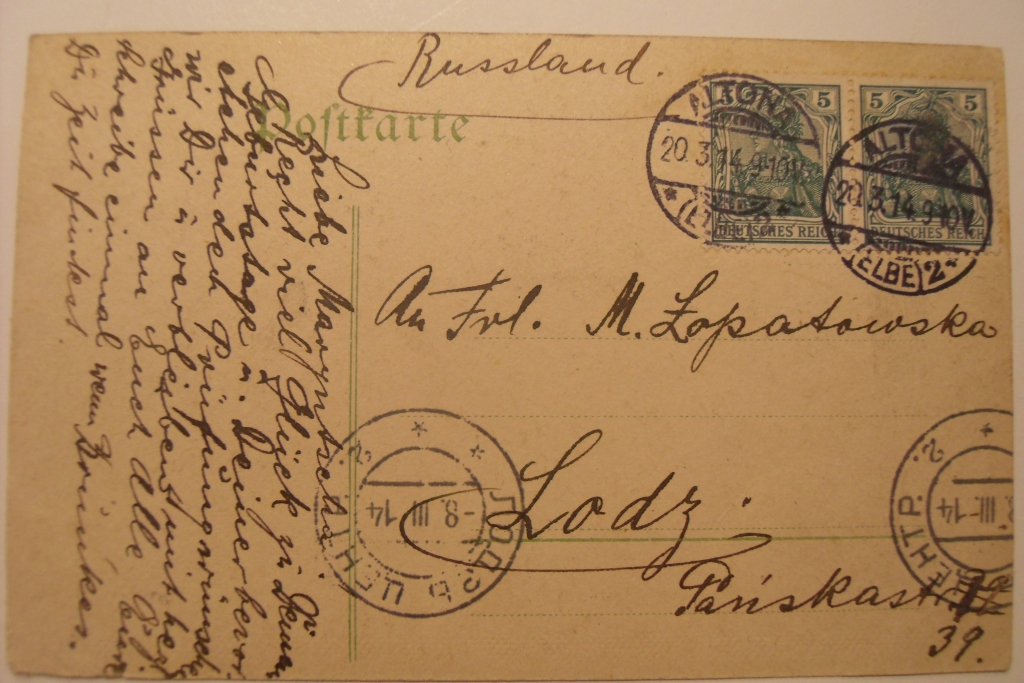 Russland.
Postkarte
5 5
ALTONA
20.3.14.9-10V.
DEUTSCHES REICH
ALTONA
20.3.14.9-10V.
(ELBE) 2*
DEUTSCHES REICH
An Frl. M. Łopatowska
Lodz.
Pańskastr.
39.
ЛОДЗЬ ЦЕНТР. 2.
-8 III 14
ЦЕНТР. 2.
III 14
Liebe Maryntscha
Recht viel Glück zu Deinem
Geburtstage u. Deiner bevor
stehenden Prüfung wünsche
wir Dir u. verbleiben mit herzl
Grüssen an Euch Alle Eure
Schreibe einmal wenn
Du Zeit findest.